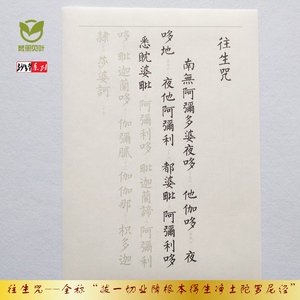 往生咒
南無阿彌多婆夜哆 他伽哆 夜
哆地 夜他阿彌利 都婆毗 阿彌利哆
悉眈婆毗 阿彌利哆 毗迦蘭諦 阿彌利
哆 毗迦蘭哆 伽彌膩 伽伽那 枳多迦
隸 莎婆訶
往生咒--全称“拔一切业障根本得生净土陀罗尼经”